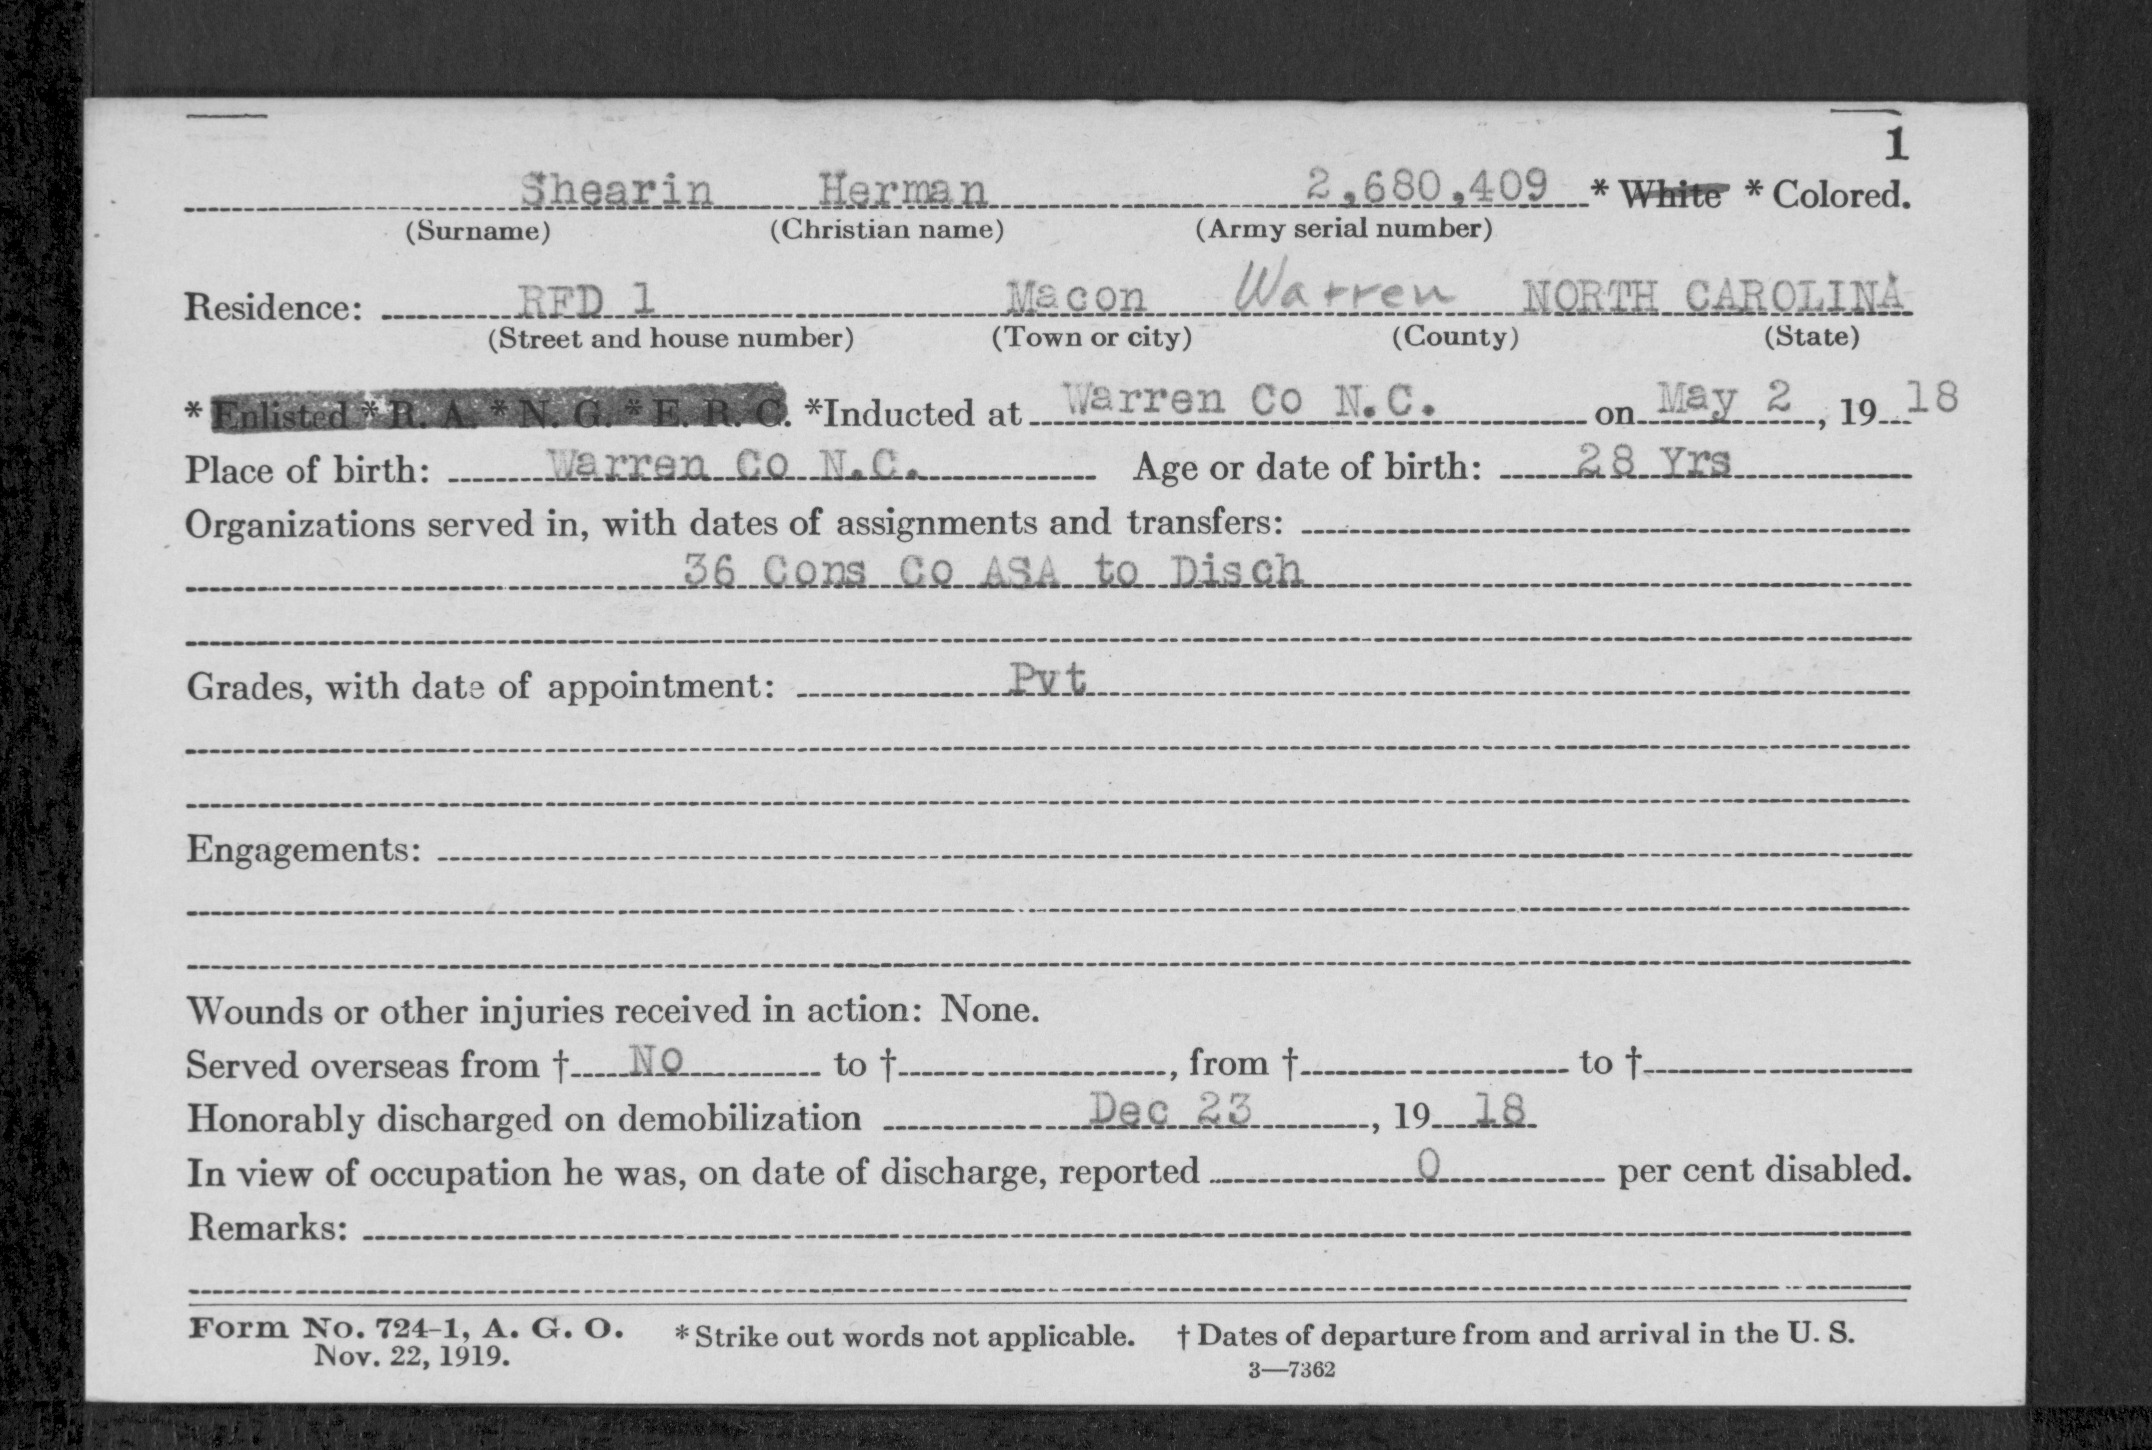 1
Shearin Herman 2,680,409 * White * Colored.
(Surname) (Christian name) (Army serial number)
Residence: RFD 1 Macon Warren NORTH CAROLINA
(Street and house number) (Town or city) (County) (State)
* Enlisted * R. A. * N. G. * E. R. C. *Inducted at Warren Co N.C. on May 2, 19 18
Place of birth: Warren Co N.C. Age or date of birth: 28 Yrs
Organizations served in, with dates of assignments and transfers:
36 Cons Co ASA to Disch
Grades, with date of appointment: Pvt
Engagements:
Wounds or other injuries received in action: None.
Served overseas from † No to †, from † to †
Honorably discharged on demobilization Dec 23, 19 18
In view of occupation he was, on date of discharge, reported 0 per cent disabled.
Remarks:
Form No. 724-1, A. G. O. * Strike out words not applicable. † Dates of departure from and arrival in the U. S.
Nov. 22, 1919.
3—7362